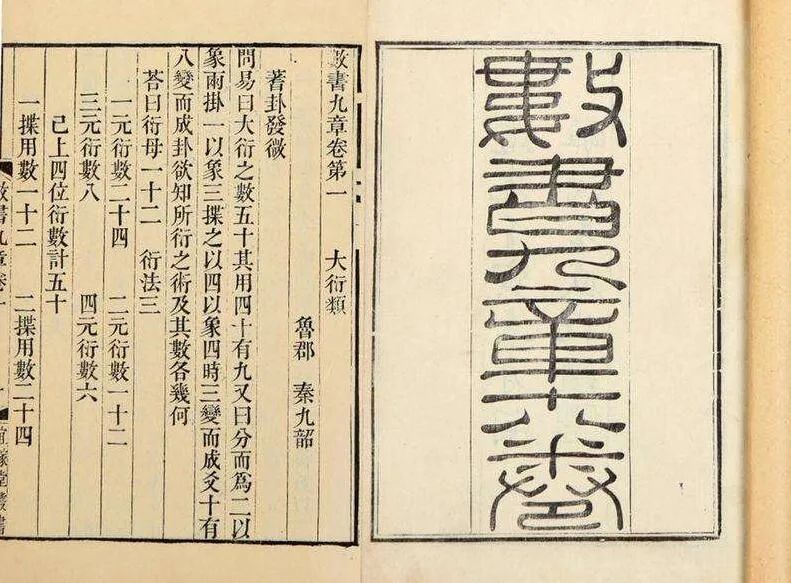 數書九章十八卷
數書九章卷第一 大衍類
魯郡 秦九韶
蓍卦發微
問易曰大衍之數五十其用四十有九又曰分而爲二以
象兩掛一以象三揲之以四以象四時三變而成爻十有
八變而成卦欲知所衍之術及其數各幾何
荅曰衍母一十二 衍法三
一元衍數二十四 二元衍數一十二
三元衍數八 四元衍數六
已上四位衍數計五十
一揲用數一十二 二揲用數二十四
數書九章卷一
宜稼堂叢書